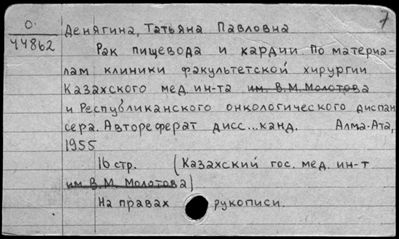 О.
44862
7
Денягина, Татьяна Павловна
Рак пищевода и кардии По материа-
лам клиники факультетской хирургии
Казахского мед. ин-та им. В.М. Молотова
и Республиканского онкологического диспан
сера. Автореферат дисс...канд. Алма-Ата,
1955
16 стр. (Казахский гос. мед. ин-т
им В.М. Молотова)
На правах рукописи.